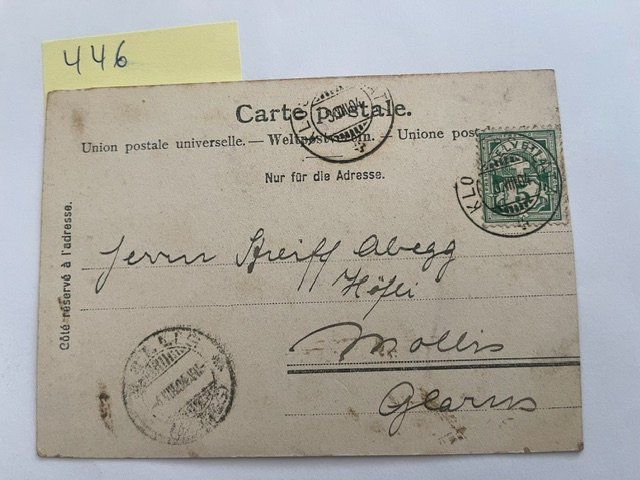 446
Carte postale.
Union postale universelle. — Weltpostverein. — Unione post
Nur für die Adresse.
Côté réservé à l'adresse.
KLO
5
Herrn Streiff Abegg
Höfli
Mollis
Glarus